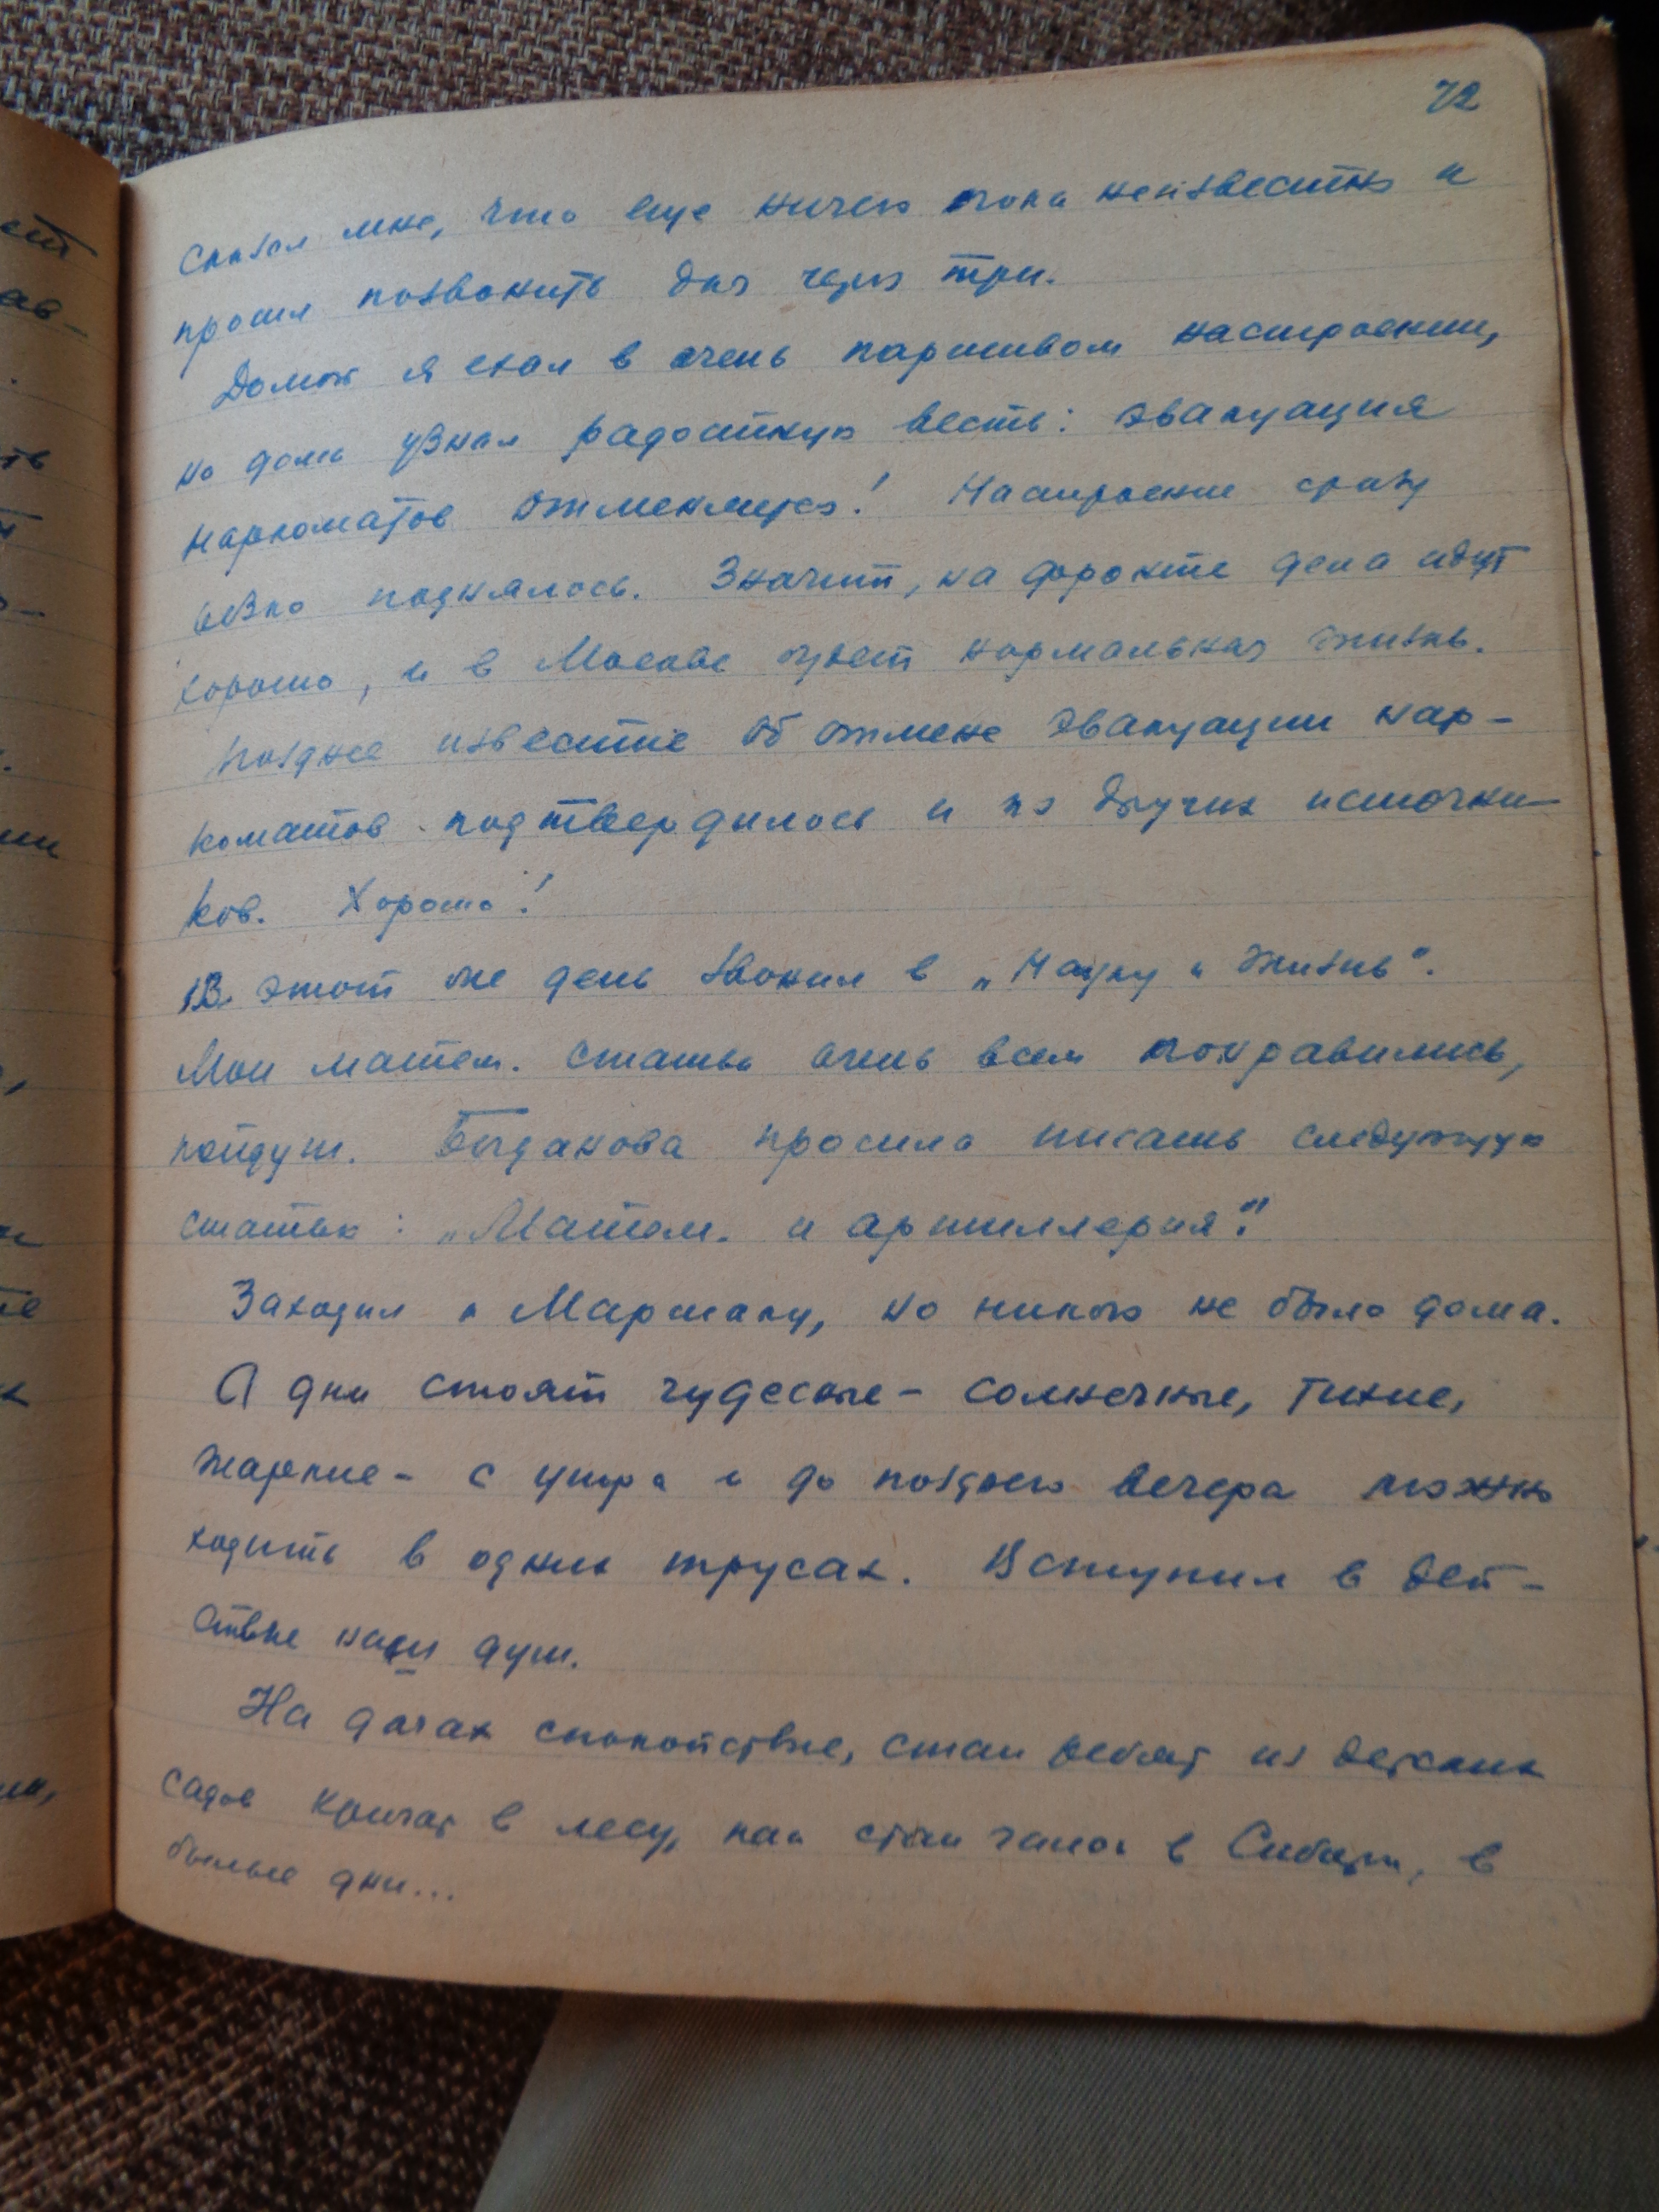 72
сказал мне, что еще ничего пока неизвестно и
просил позвонить дня через три.
Домой я ехал в очень паршивом настроении,
но дома узнал радостную весть: эвакуация
наркоматов отменяется! Настроение сразу
резко поднялось. Значит, на фронте дела идут
хорошо, и в Москве будет нормальная жизнь.
Позднее известие об отмене эвакуации нар-
коматов подтвердилось и из других источни-
ков. Хорошо!
В этот же день звонил в „Науку и Жизнь".
Мои матем. статьи очень всем понравились,
пойдут. Богданова просила писать следующую
статью: „Матем. и артиллерия".
Заходил к Маршаку, но никого не было дома.
А дни стоят чудесные - солнечные, тихие,
жаркие - с утра и до позднего вечера можно
ходить в одних трусах. Вступил в дей-
ствие наш душ.
На дачах спокойствие, стаи ребят из детских
садов кричат в лесу, как стаи галок в Сибири, в
былые дни...
ст
ав-
ть
ии